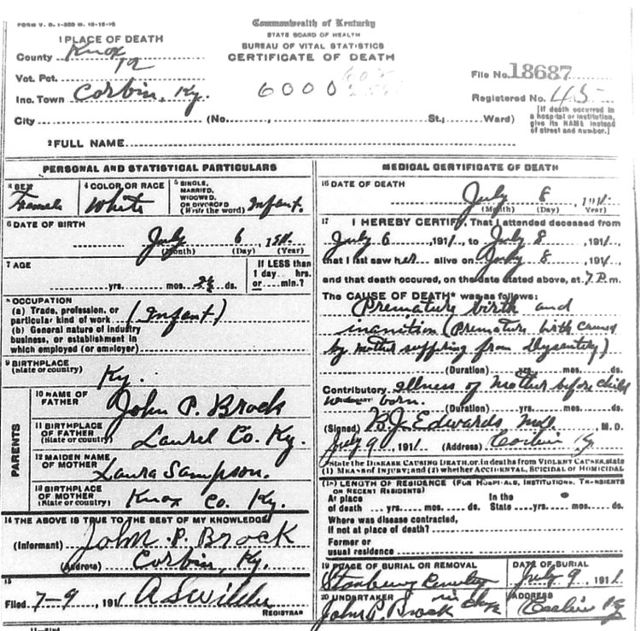 FORM V. S. 1-
Commonwealth of Kentucky
STATE BOARD OF HEALTH
BUREAU OF VITAL STATISTICS
CERTIFICATE OF DEATH
1 PLACE OF DEATH
County Knox
Vot. Pct. 12
Inc. Town Corbin, Ky.
6000
File No. 18687
Registered No. 45
[If death occurred in a hospital or institution, give its NAME instead of street and number.]
City (No. , St.; Ward)
2 FULL NAME
PERSONAL AND STATISTICAL PARTICULARS
3 SEX Female
4 COLOR OR RACE White
5 SINGLE, MARRIED, WIDOWED OR DIVORCED (Write the word) Infant.
6 DATE OF BIRTH
July 6, 1911
(Month) (Day) (Year)
7 AGE
yrs. mos. 2½ ds.
If LESS than 1 day hrs. or min.?
8 OCCUPATION
(a) Trade, profession, or particular kind of work (Infant)
(b) General nature of industry business, or establishment in which employed (or employer)
9 BIRTHPLACE
(State or country) Ky.
PARENTS
10 NAME OF FATHER John P. Brock
11 BIRTHPLACE OF FATHER (State or country) Laurel Co. Ky.
12 MAIDEN NAME OF MOTHER Laura Sampson.
13 BIRTHPLACE OF MOTHER (State or country) Knox Co. Ky.
14 THE ABOVE IS TRUE TO THE BEST OF MY KNOWLEDGE
(Informant) John P. Brock
(Address) Corbin, Ky.
15
Filed 7-9, 1911 A S Wilder
REGISTRAR
MEDICAL CERTIFICATE OF DEATH
16 DATE OF DEATH
July 8, 1911
(Month) (Day) (Year)
17 I HEREBY CERTIFY, That I attended deceased from
July 6, 1911, to July 8, 1911
that I last saw her alive on July 8, 1911,
and that death occurred, on the date stated above, at 7 P.m.
The CAUSE OF DEATH* was as follows:
Premature birth and
inanition (Premature birth caused
by mother suffering from dysentery)
(Duration) yrs. mos. ds.
Contributory Illness of mother before child
was born.
(Duration) yrs. mos. ds.
(Signed) B.J. Edwards M.D., M. D.
July 9, 1911 (Address) Corbin Ky
*State the DISEASE CAUSING DEATH, or, in deaths from VIOLENT CAUSES, state (1) MEANS OF INJURY; and (2) whether ACCIDENTAL, SUICIDAL OR HOMICIDAL
18 LENGTH OF RESIDENCE (FOR HOSPITALS, INSTITUTIONS, TRANSIENTS OR RECENT RESIDENTS)
At place of death yrs. mos. ds. In the State yrs. mos. ds.
Where was disease contracted,
if not at place of death?
Former or
usual residence
19 PLACE OF BURIAL OR REMOVAL
DATE OF BURIAL
July 9, 1911
20 UNDERTAKER
John P. Brock
ADDRESS
Corbin Ky